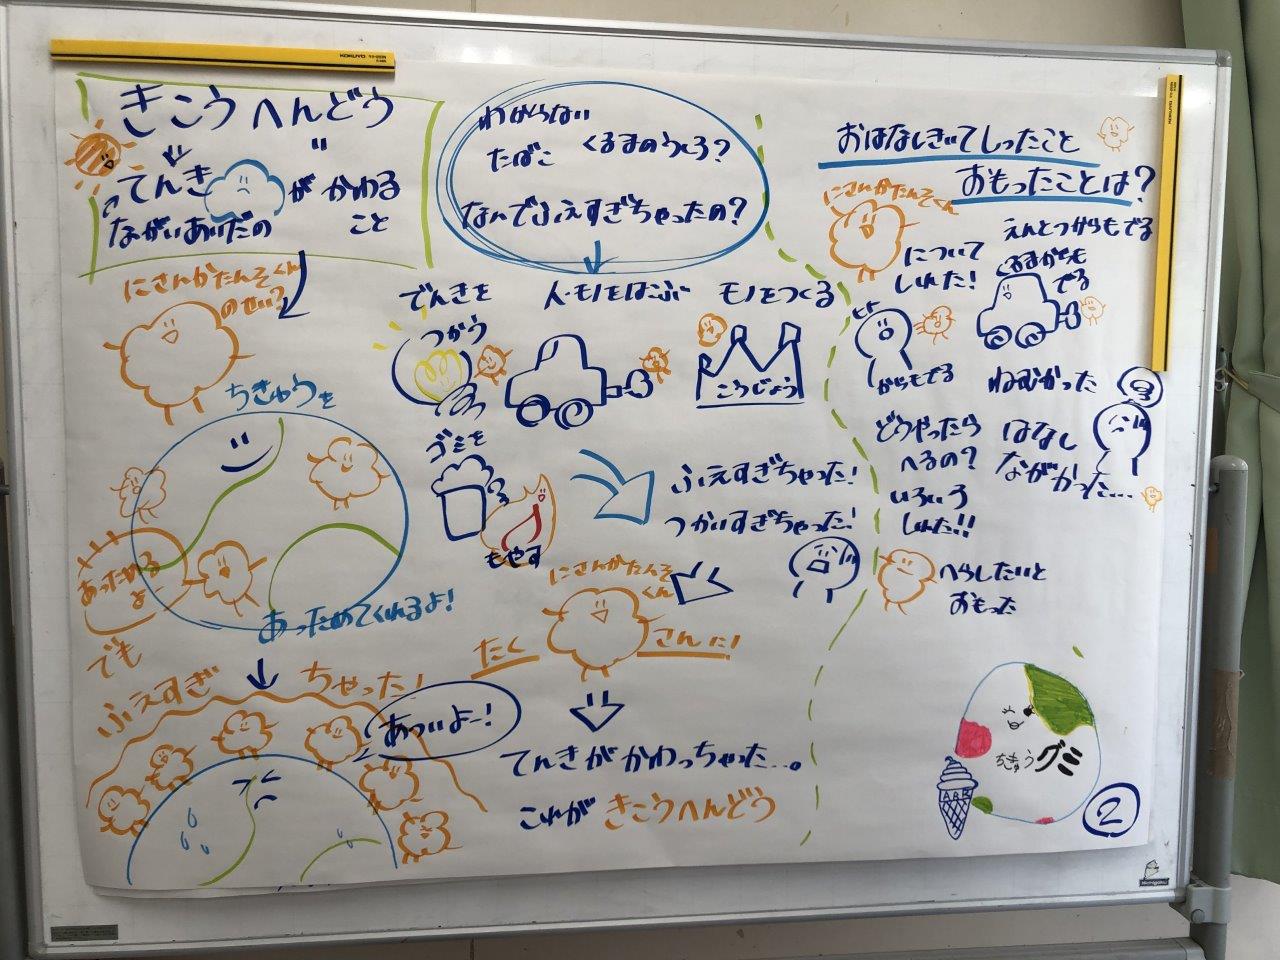 きこうへんどう
てんき が かわる
ながいあいだの こと
にさんかたんそくん
のせい?
ちきゅうを
あっためる
よ
あっためてくれるよ!
でも
ふえすぎ ちゃった!
あついよー!
わからない
たばこ くるまのうしろ?
なんでふえすぎちゃったの?
でんきを
つかう
人・モノをはこぶ
モノをつくる
こうじょう
ゴミを
もやす
ふえすぎちゃった!
つかいすぎちゃった!
にさんかたんそ
くん
たく さんに!
てんきがかわっちゃった...。
これが きこうへんどう
おはなしきいてしったこと
おもったことは?
にさんかたんそくん
について
しれた!
えんとつからもでる
くるまからも
でる
ヒト
からもでる
ねむかった
どうやったら
へるの?
いろいろ
しれた!!
はなし
ながかった...
へらしたいと
おもった
ちきゅうグミ
2
KOKUYO
KOKUYO